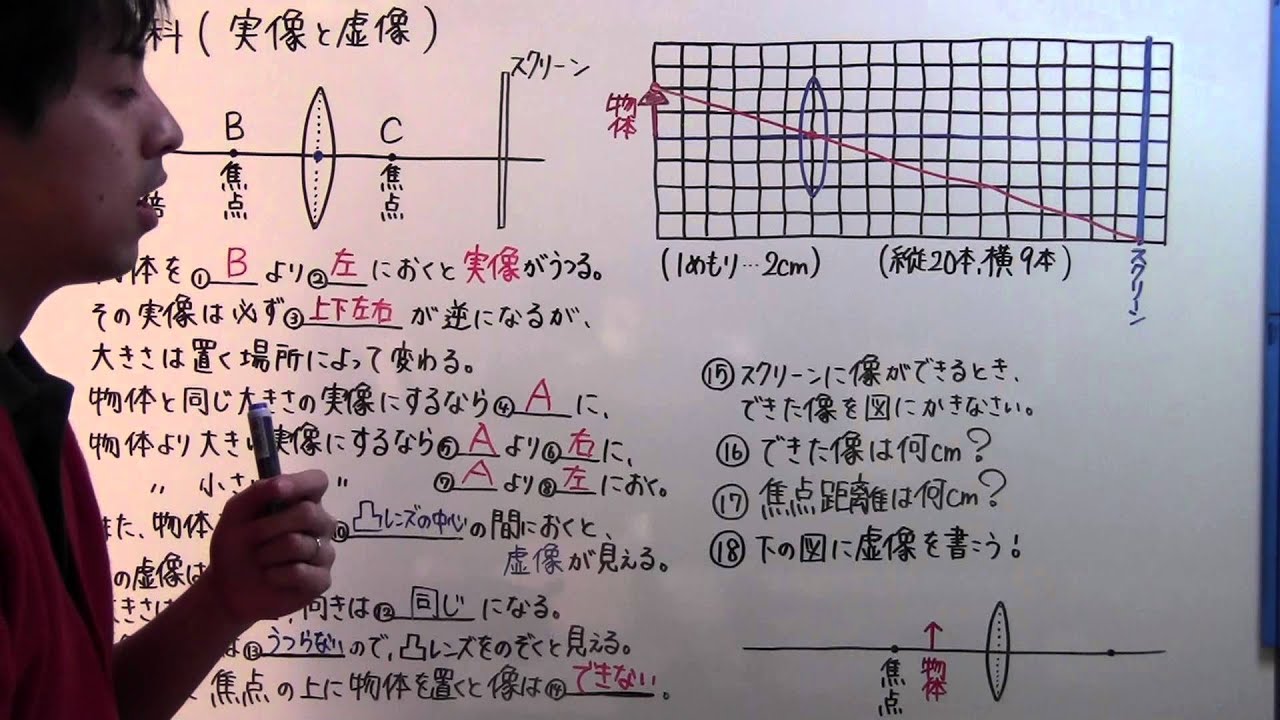 科(実像と虚像)
スクリーン
B
C
焦点
焦点
倍
物体を①Bより②左におくと実像がうつる。
その実像は必ず③上下左右が逆になるが、
大きさは置く場所によって変わる。
物体と同じ大きさの実像にするなら④Aに、
物体より大きい実像にするなら⑤Aより⑥右に、
〃 小さい 〃 ⑦Aより⑧左におく。
また、物体 ⑩凸レンズの中心の間におくと、
虚像が見える。
の虚像は
大きさは 向きは⑫同じになる。
は⑬うつらないので、凸レンズをのぞくと見える。
焦点の上に物体を置くと像は⑭できない。
物体
スクリーン
(1めもり…2cm) (縦20本、横9本)
⑮スクリーンに像ができるとき、
できた像を図にかきなさい。
⑯できた像は何cm?
⑰焦点距離は何cm?
⑱下の図に虚像を書こう!
焦点
物体